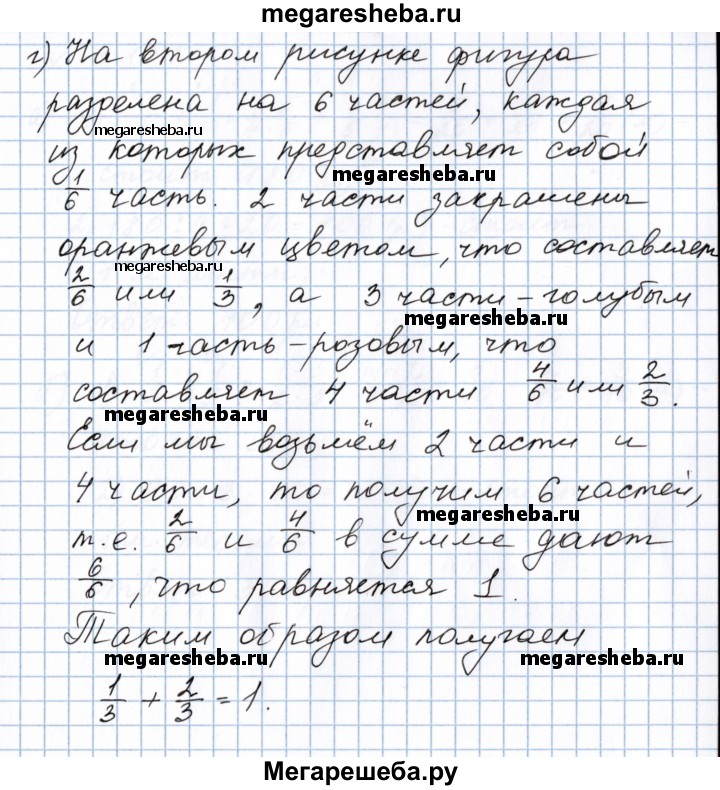 megaresheba.ru
г) На втором рисунке фигура
разделена на 6 частей, каждая
megaresheba.ru
из которых представляет собой
megaresheba.ru
1/6 часть. 2 части закрашены
оранжевым цветом, что составляет
megaresheba.ru
2/6 или 1/3, а 3 части – голубым
megaresheba.ru
и 1 часть – розовым, что
составляет 4 части 4/6 или 2/3.
megaresheba.ru
Если мы возьмём 2 части и
4 части, то получим 6 частей,
megaresheba.ru
т.е. 2/6 и 4/6 в сумме дают
6/6, что равняется 1.
Таким образом получаем
megaresheba.ru megaresheba.ru
1/3 + 2/3 = 1.
Мегарешеба.ру